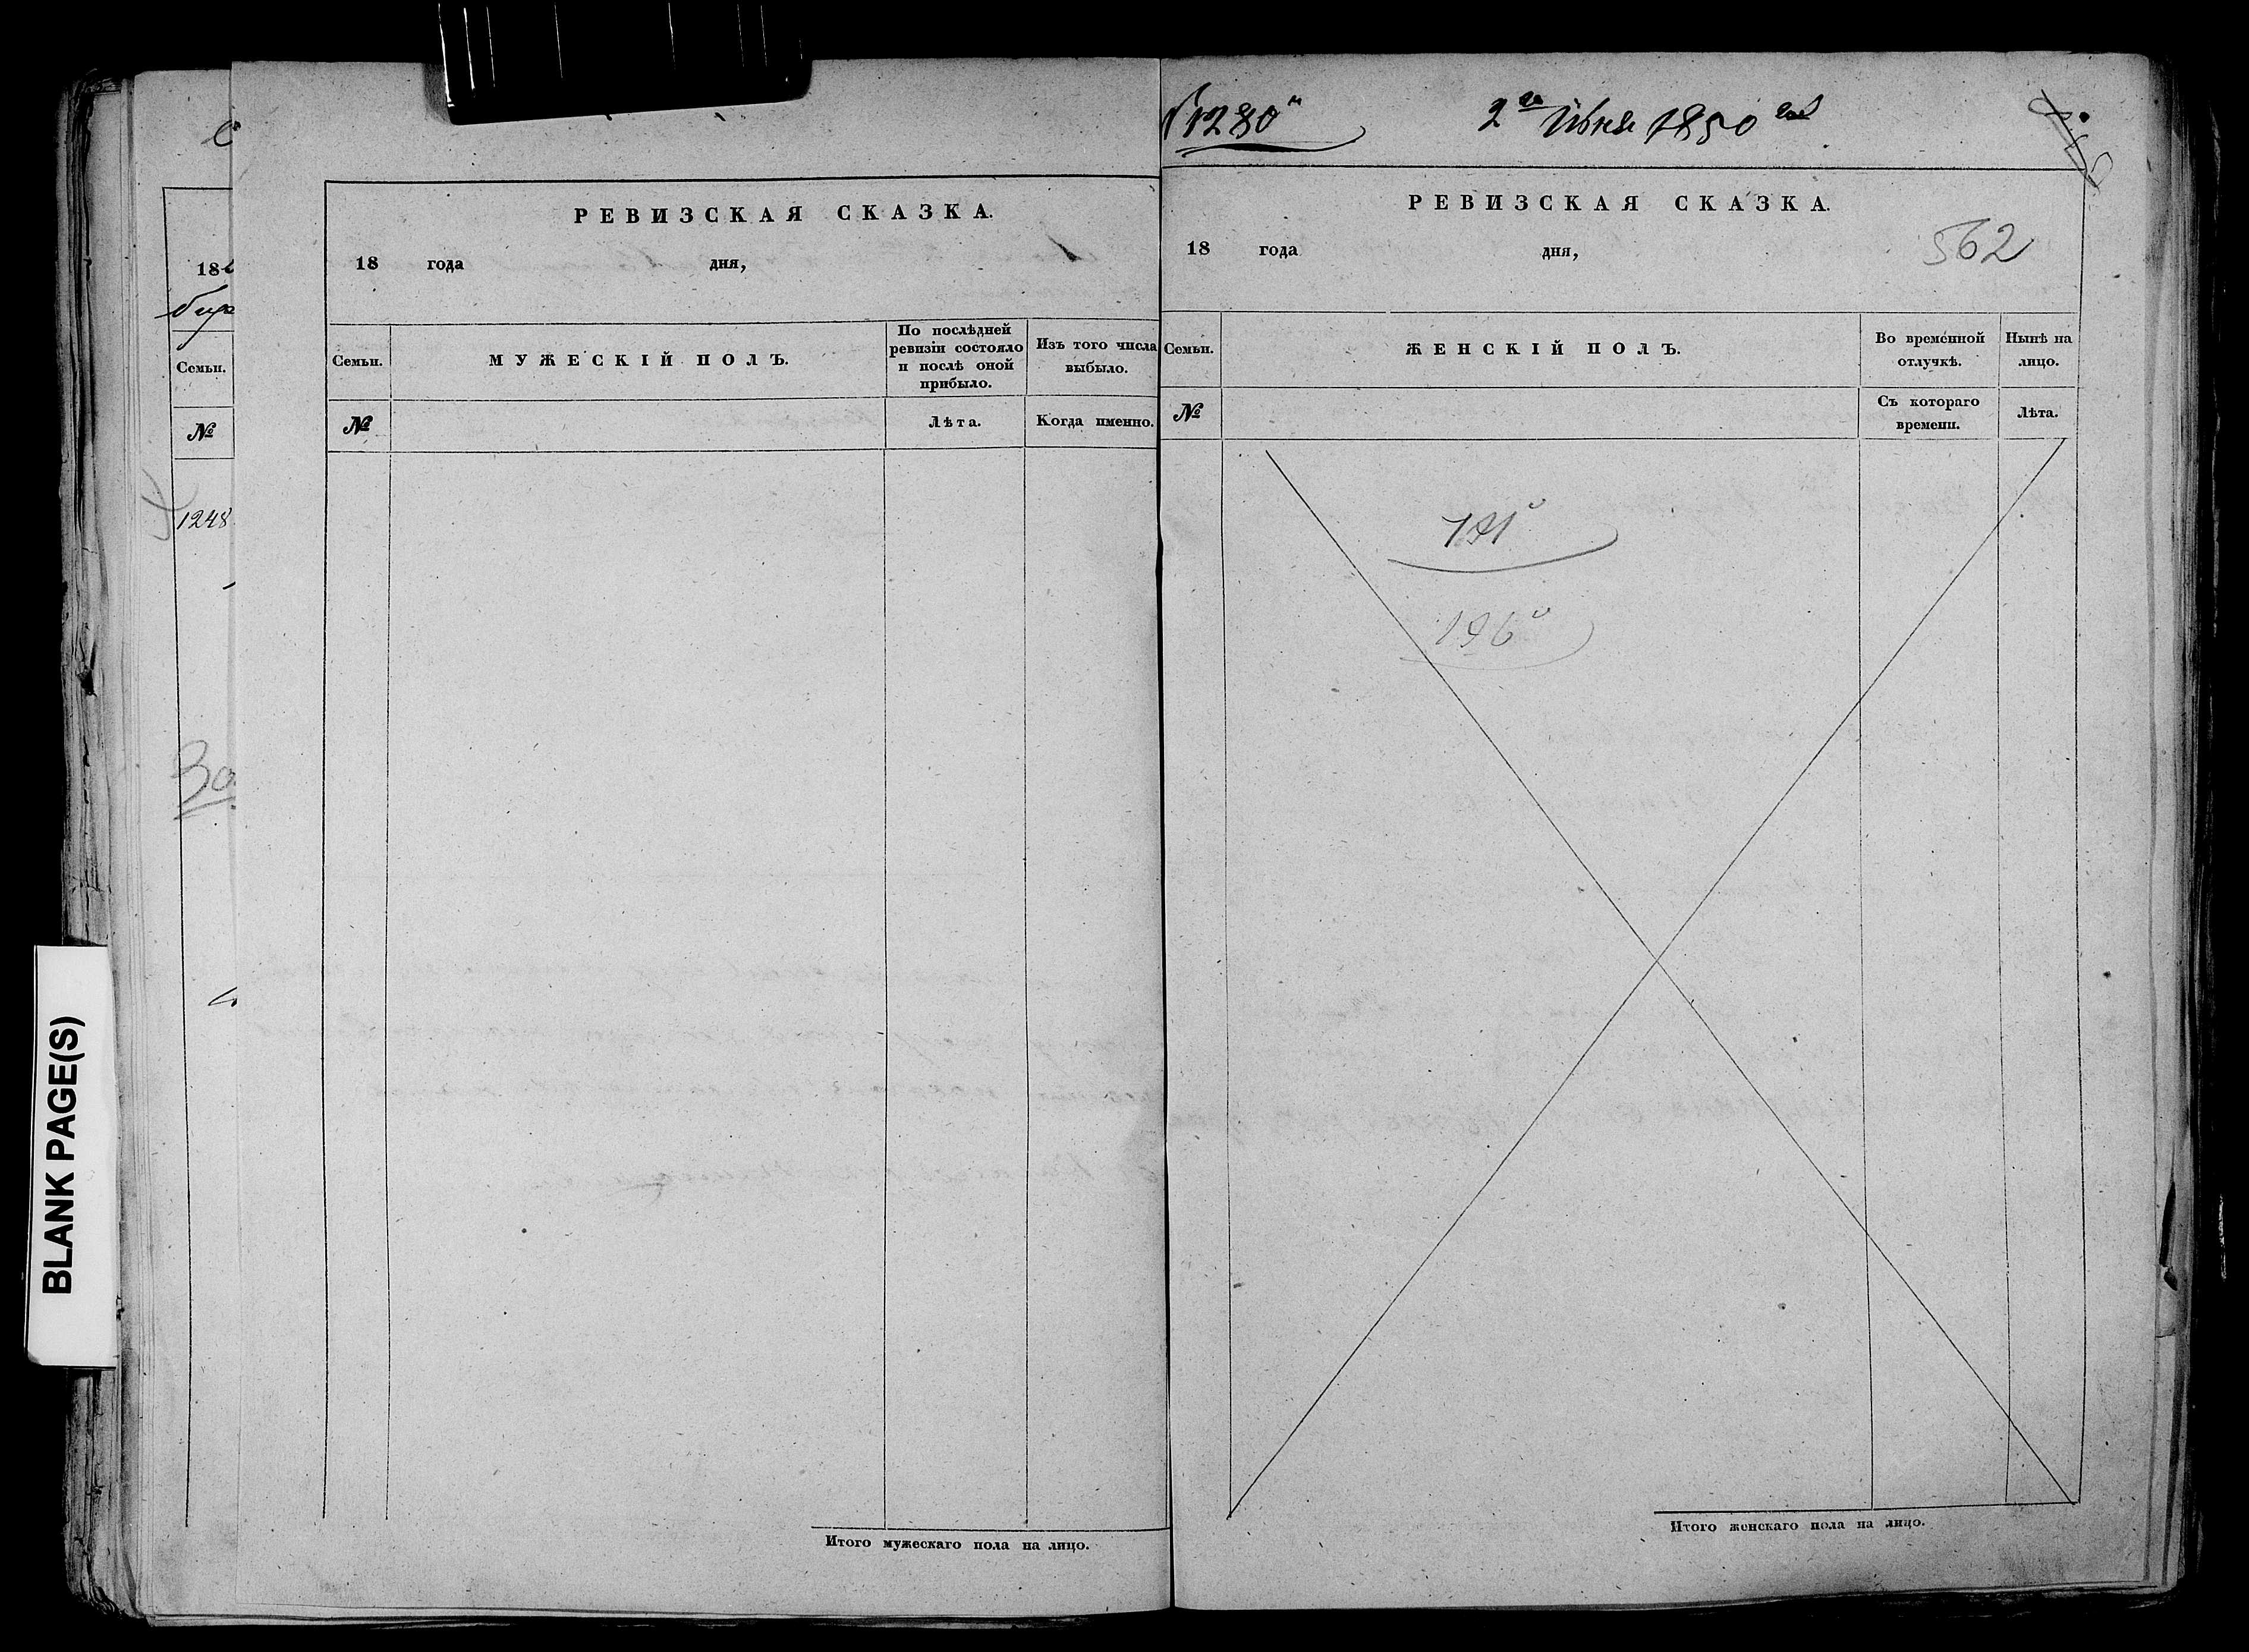 BLANK PAGE(S)
18
Семьи.
№
1248
РЕВИЗСКАЯ СКАЗКА.
18 года дня,
Семьи.
МУЖЕСКІЙ ПОЛЪ.
По послѣдней
ревизіи состояло
и послѣ оной
прибыло.
Изъ того числа
выбыло.
№
Лѣта.
Когда именно.
Итого мужескаго пола на лицо.
№1280
2го Июня 1850 год
РЕВИЗСКАЯ СКАЗКА.
18 года дня,
562
Семьи.
ЖЕНСКІЙ ПОЛЪ.
Во временной
отлучкѣ.
Нынѣ на
лицо.
№
Съ котораго
времени.
Лѣта.
Итого женскаго пола на лицо.